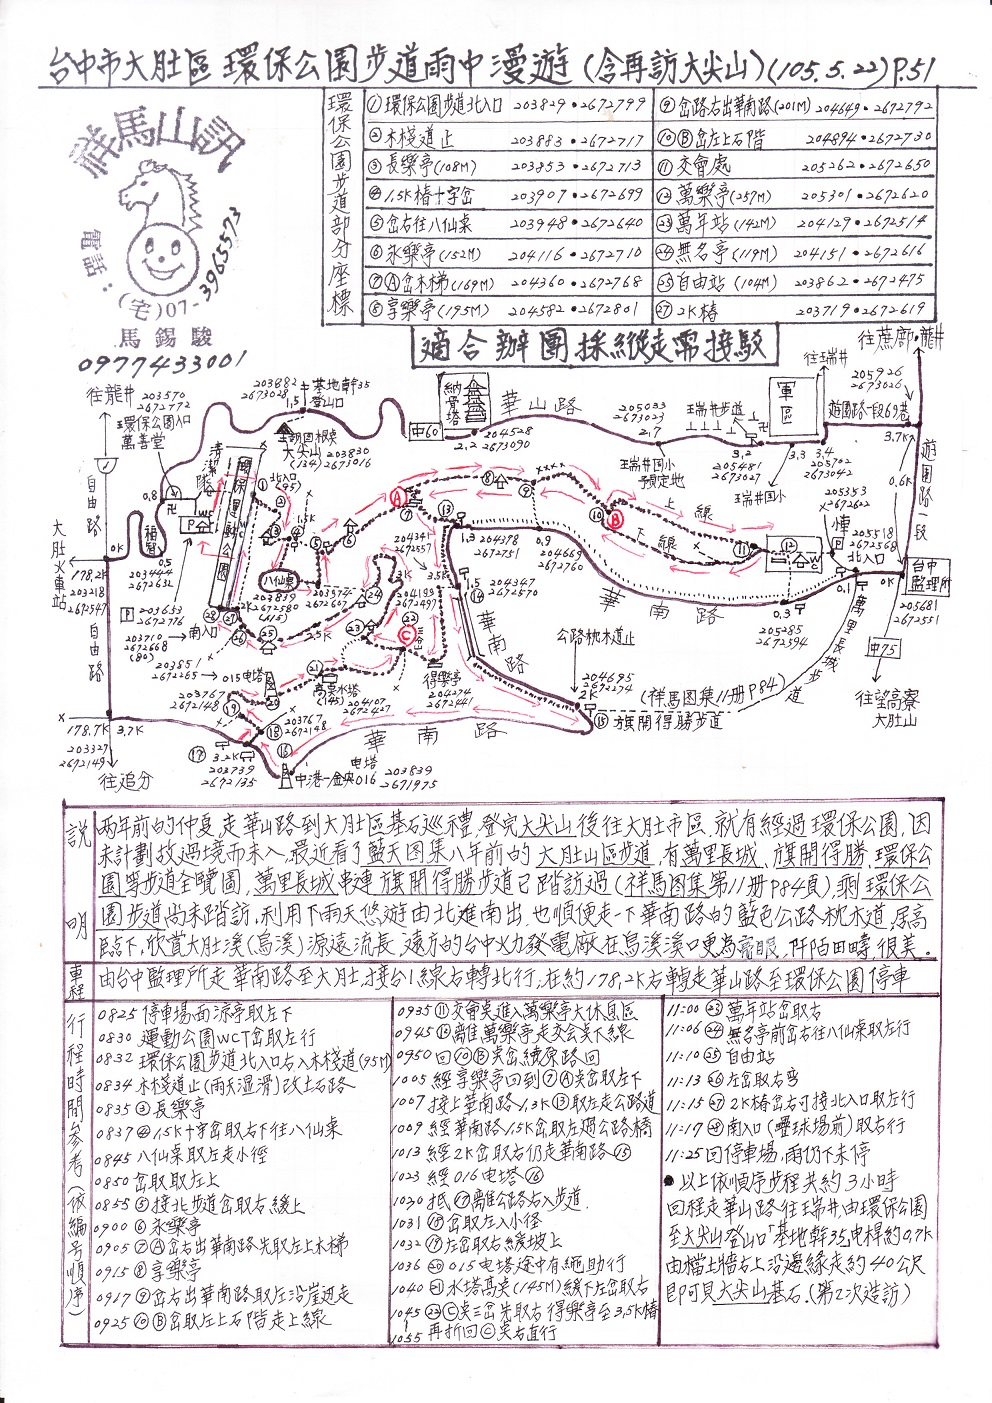 台中市大肚區環保公園步道雨中漫遊(含再訪大尖山)(105.5.22)P.51
祥馬山訊
電話:(宅)07-3965573
馬錫駿
0977433001
環保公園步道部分座標
①環保公園步道北入口 203829•2672799
②木棧道止 203883•2672717
③長樂亭(108M) 203853•2672713
④1.5K樁十字岔 203907•2672699
⑤岔右往八仙桌 203948•2672640
⑥永樂亭(152M) 204116•2672710
⑦Ⓐ岔木梯(169M) 204360•2672768
⑧享樂亭(195M) 204582•2672801
⑨岔路右出華南路(201M) 204649•2672792
⑩Ⓑ岔左上石階 204894•2672730
⑪交會處 205262•2672650
⑫萬樂亭(257M) 205301•2672620
㉓萬年站(142M) 204129•2672514
㉔無名亭(119M) 204151•2672616
㉕自由站(104M) 203862•2672475
㉗2K樁 203719•2672619
適合辦團採縱走需接駁
往蔗廍•龍井
往瑞井
往龍井
203570
2672772
環保公園入口
萬善堂
203882
2673028
基地幹35
登山口
1.5
大尖山
(134)
203830
2673016
納骨塔
中60
華山路
204528
2673090
2.2
205033
2673023
2.7
瑞井國小
預定地
瑞井步道
3.2
205481
2673027
軍區
瑞井國小
3.3
3.4
205702
2673042
205926
2673026
遊園路一段69巷
3.7K
遊園路一段
0.6K
清潔隊
環保運動公園
北入口
(95)
0.8
WC
P
自由路
大肚火車站
178.2K
203218
2672547
0K
0.5
203444
2672632
203653
2672776
203710
2672668
(80)
南入口
2K
八仙桌
203839
2672580
(115)
203574
2672607
2.5K
3K
3.5K
204357
2672557
204193
2672497
1.3
204378
2672751
0.9
204669
2672760
上線
下線
205353
2672622
北入口
205518
2672568
0.1
0K
台中監理所
205681
2672551
中75
往望高寮
大肚山
0.3
205285
2672594
萬里長城步道
1.5
204347
2672570
華南路
華南路
公路枕木道止
204695
2672274
2K
(祥馬图集11册P84)
⑮旗開得勝步道
得樂亭
204274
2672441
203851
2672265
015电塔
高奌水塔
(145)
204107
2672427
203767
2672148
203767
2672148
自由路
178.7K
203327
2672149
3.7K
往追分
3.2K
203739
2672135
电塔
中港一金央016
203839
2671975
華南路
說明
兩年前的仲夏,走華山路到大肚區基石巡禮,登完大尖山後往大肚市區,就有經過環保公園,因
未計劃故過境而未入,最近看了藍天图集八年前的大肚山區步道,有萬里長城、旗開得勝、環保公
園等步道全覽圖,萬里長城串連旗開得勝步道已踏訪過(祥馬图集第11册P84頁),剩環保公
園步道尚未踏訪,利用下雨天悠遊由北進南出,也順便走一下華南路的藍色公路枕木道,居高
臨下,欣賞大肚溪(烏溪)源遠流長,遠方的台中火力發電廠在烏溪溪口更為亮眼,阡陌田疇很美。
車程
由台中監理所走華南路至大肚,接台1線右轉北行,在約178.2K右轉走華山路至環保公園停車
行程時間參考(依編号順序)
0825 停車場面涼亭取左下
0830 運動公園WC丁岔取左行
0832 環保公園步道北入口右入木棧道(95M)
0834 木棧道止(雨天濕滑)改土石路
0835 ③長樂亭
0837 ④1.5K十字岔取右下往八仙桌
0845 八仙桌取左走小徑
0850 岔取左上
0855 ⑤接北步道岔取右緩上
0900 ⑥永樂亭
0905 ⑦Ⓐ岔右出華南路先取左上木梯
0915 ⑧享樂亭
0917 ⑨岔右出華南路取左沿崖边走
0925 ⑩Ⓑ岔取左上石階走上線
0935 ⑪交會奌進入萬樂亭大休息區
0945 ⑫離進萬樂亭走交会奌下線
0950 回⑩Ⓑ奌岔續原路回
1005 經享樂亭回到⑦Ⓐ奌岔取左下
1007 接上華南路1.3K⑬取左走公路道
1009 經華南路1.5K岔取左過公路橋
1013 經2K岔取右仍走華南路⑮
1023 經016电塔⑯
1030 抵⑰離公路右入步道
1031 ⑱岔取左入小徑
1032 ⑲左岔取右緩坡上
1036 ⑳015电塔途中有繩助行
1040 ㉑水塔高奌(145M)緩下左岔取右
1045 ㉒Ⓒ奌三岔先取右得樂亭至3.5K樁
1055 再折回Ⓒ奌右直行
11:00 ㉓萬年站岔取右
11:06 ㉔無名亭前岔右往八仙桌取左行
11:10 ㉕自由站
11:13 ㉖左岔取右彎
11:15 ㉗2K樁岔右可接北入口取左行
11:17 ㉘南入口(壘球場前)取右行
11:25 回停車場,雨仍下未停
●以上依順序步程共約3小時
回程走華山路往瑞井由環保公園
至大尖山登山口「基地幹35电桿約0.7K
由擋土牆右上沿邊緣走約40公尺
即可見大尖山基石.(第2次造訪)